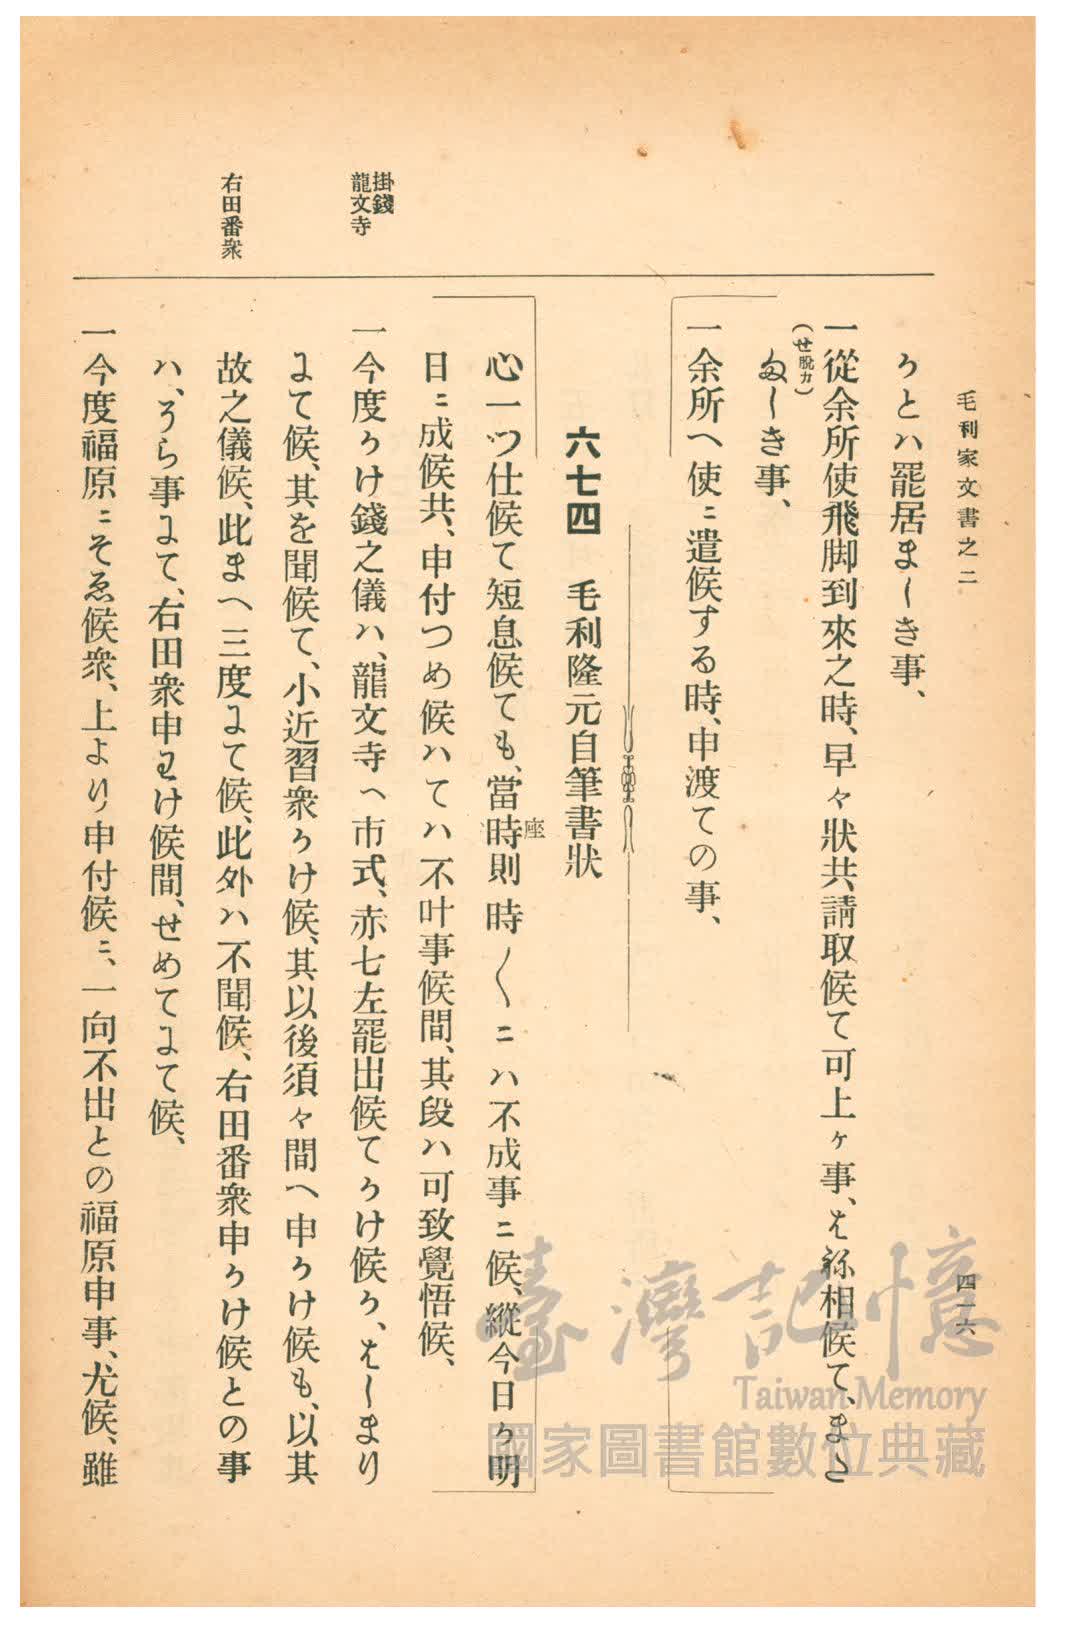 毛利家文書之二
四一六
うとハ罷居ましき事、
一從余所使飛脚到來之時、早々狀共請取候て可上ヶ事、を祢相候て、また
(せ脫カ)
ぬしき事、
一余所へ使ニ遣候する時、申渡ての事、
六七四 毛利隆元自筆書狀
心一つ仕候て短息候ても、當時則時〱ニハ不成事ニ候、縱今日か明
座
日ニ成候共、申付つめ候ハてハ不叶事候間、其段ハ可致覺悟候、
掛錢
龍文寺
一今度かけ錢之儀ハ、龍文寺へ市式、赤七左罷出候てかけ候か、はしまり
にて候、其を聞候て、小近習衆かけ候、其以後須々間へ申かけ候も、以其
故之儀候、此まへ三度にて候、此外ハ不聞候、右田番衆申かけ候との事
右田番衆
ハ、うら事にて、右田衆申わけ候間、せめてにて候、
一今度福原ニそゑ候衆、上より申付候ニ、一向不出との福原申事、尤候、雖
臺灣記憶
Taiwan Memory
國家圖書館數位典藏